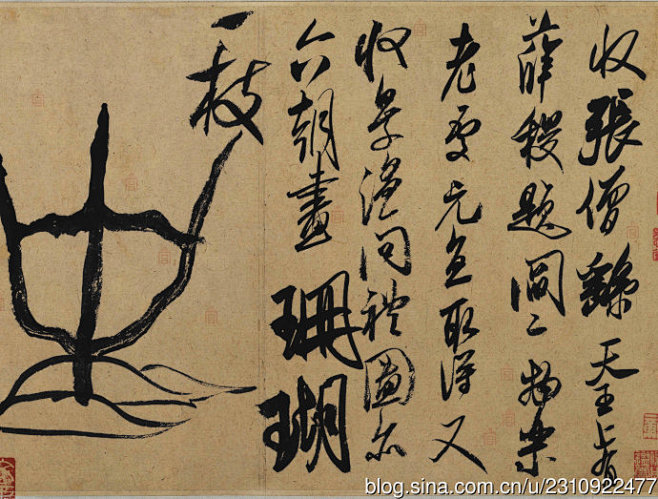 收張僧繇天王上有
薛稷題閻二物樂
老處元直取得又
收景溫問禮圖亦
六朝畫珊瑚
一枝
blog.sina.com.cn/u/2310922477